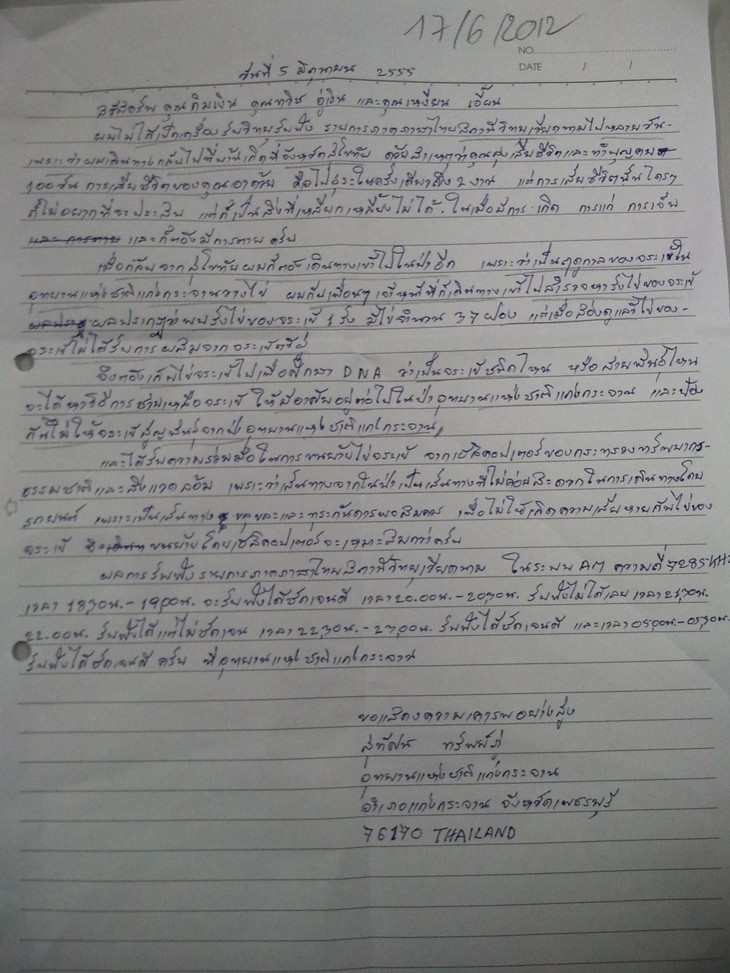 17/6/2012
NO.
DATE / /
วันที่ 5 มิถุนายน 2555
สวัสดีครับ คุณกิมเงิน คุณทวิช อู่เงิน และคุณเหงียน เอี้ยน
ผมไม่ได้เปิดเครื่องรับวิทยุรับฟัง รายการภาคภาษาไทยสถานีวิทยุเวียดนามไปหลายวัน
เพราะว่าผมเดินทางกลับไปที่บ้านเกิดที่จังหวัดสุโขทัย ด้วยสาเหตุว่าคุณลุงเสียชีวิตและทำบุญครบ
100 วัน การเสียชีวิตของคุณอาด้วย คือไปธุระในครั้งเดียวถึง 2 งาน แต่การเสียชีวิตนั้นใครๆ
ก็ไม่อยากที่จะประสบ แต่ก็เป็นสิ่งที่หลีกเหลี่ยงไม่ได้ ในเมื่อมีการเกิด การแก่ การเจ็บ
และก็ต้องมีการตายครับ
เมื่อกลับจากสุโขทัยผมก็ต้องเดินทางเข้าไปในป่าอีก เพราะว่าเป็นฤดูกาลของจระเข้ใน
อุทยานแห่งชาติแก่งกระจานวางไข่ ผมกับเพื่อนๆ เจ้าหน้าที่ก็เดินทางเข้าไปสำรวจหารังไข่ของจระเข้
ผลปรากฎว่าพบรังไข่ของจระเข้ 1 รัง มีไข่จำนวน 37 ฟอง แต่เมื่อส่องดูแล้วไข่ของ
จระเข้ไม่ได้รับการผสมจากจระเข้ตัวผู้
จึงต้องเก็บไข่จระเข้ไปเพื่อศึกษา DNA ว่าเป็นจระเข้ชนิดไหน หรือสายพันธุ์ไหน
จะได้หาวิธีการช่วยเหลือจระเข้ ให้มีอาศัยอยู่ต่อไปในป่าอุทยานแห่งชาติแก่งกระจาน และป้อง
กันไม่ให้จระเข้สูญพันธุ์จากป่าอุทยานแห่งชาติแก่งกระจาน
และได้รับความร่วมมือในการขนย้ายไข่จระเข้ จากเฮลิคอปเตอร์ของกระทรวงทรัพยากร
ธรรมชาติและสิ่งแวดล้อม เพราะว่าเส้นทางจากในป่าเป็นเส้นทางที่ไม่ค่อยสะดวกในการเดินทางโดย
รถยนต์ เพราะเป็นเส้นทาง ขรุขระและทุรกันดารพอสมควร เพื่อไม่ให้เกิดความเสียหายกับไข่ของ
จระเข้ ขนย้ายโดยเฮลิคอปเตอร์จะเหมาะสมกว่าครับ
ผลการรับฟังรายการภาคภาษาไทยสถานีวิทยุเวียดนาม ในระบบ AM ความถี่ 7285 KHz
เวลา 1830น.- 1900น. จะรับฟังได้ชัดเจนดี เวลา 20.00น.- 2030น. รับฟังไม่ได้เลย เวลา 2130น.
22.00น. รับฟังได้แต่ไม่ชัดเจน เวลา 2230น.- 2300น. รับฟังได้ชัดเจนดี และเวลา 0500น.- 0530น.
รับฟังได้ชัดเจนดี ครับ ที่อุทยานแห่งชาติแก่งกระจาน
ขอแสดงความเคารพอย่างสูง
สุทัศน ทรัพย์ภู่
อุทยานแห่งชาติแก่งกระจาน
อำเภอแก่งกระจาน จังหวัดเพชรบุรี
76170 THAILAND